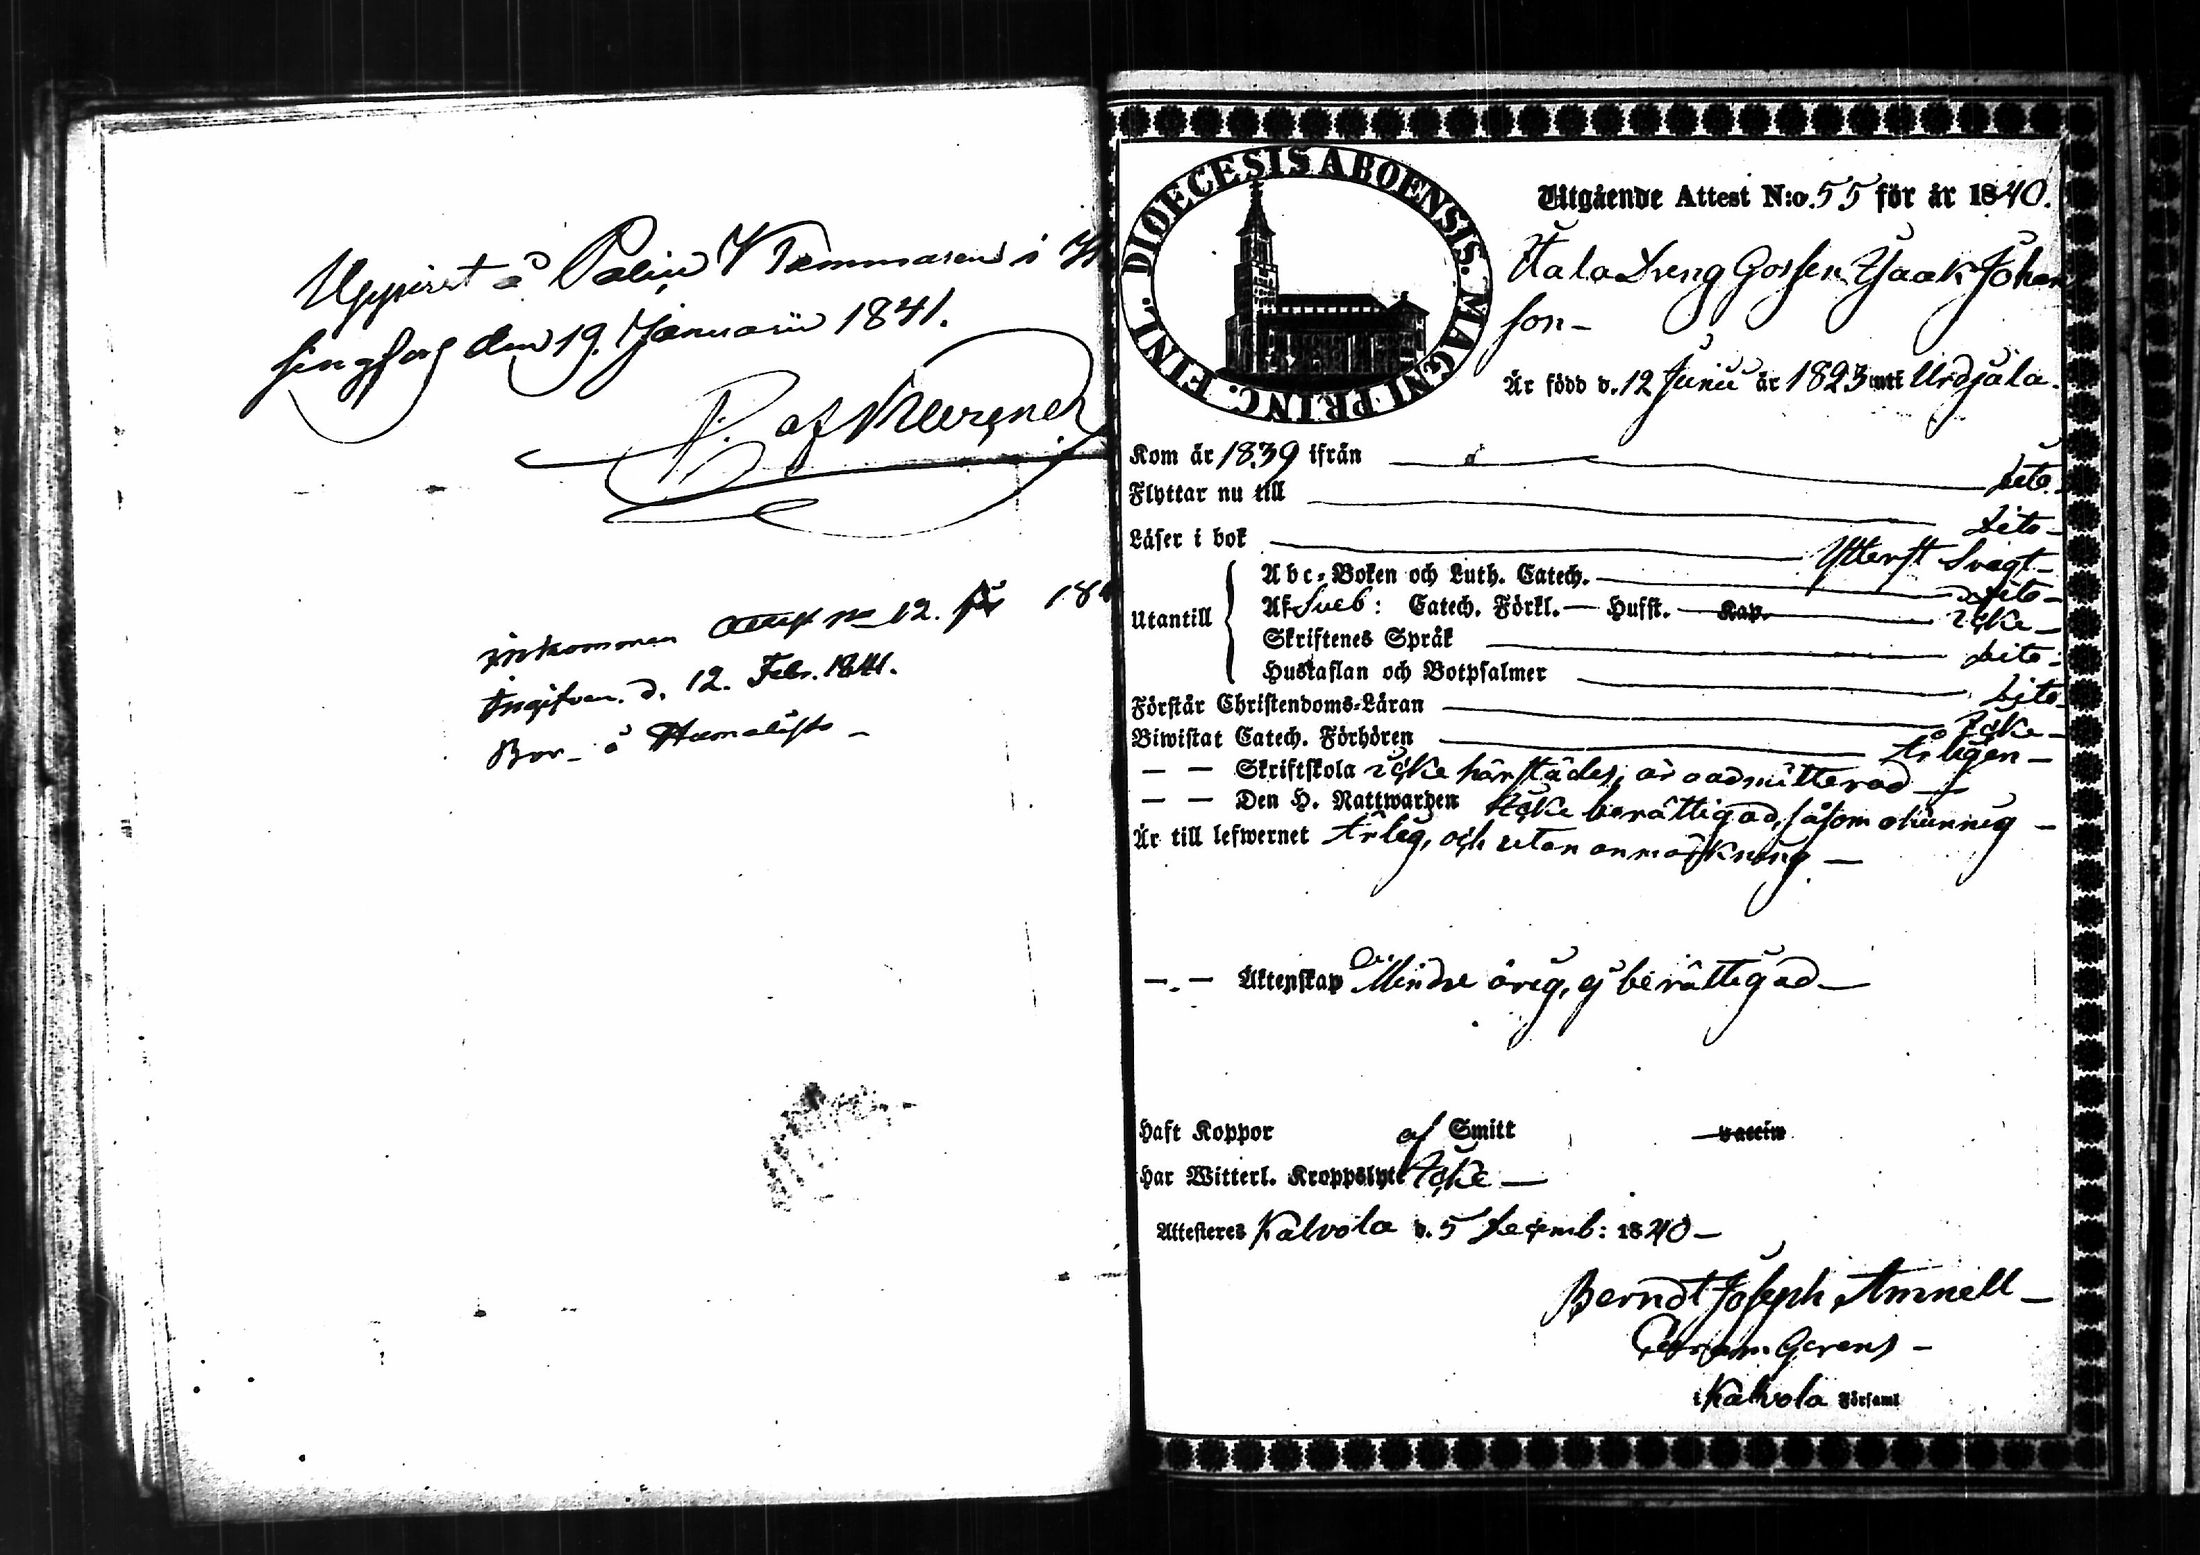 Uppvist å Polis Kammaren i H
singfors den 19. Januarii 1841.
P. af
inkommen attest no 12. för 184
Ingifven. d. 12. Febr. 1841.
Bor - å
DIOECESIS ABOENSIS. MAGNI PRINC. FINL.
Utgående Attest N:o. 55 för år 1840.
Hala Dreng Gossen Isaak Johan
son -
Är född d. 12 Junii år 1823 uti Urdjala.
Kom år 1839 ifrån dito.
Flyttar nu till dito -
Läser i bok Ytterst Svagt -
Utantill
Abc-Boken och Luth. Catech. dito -
Af Sveb: Catech. Förkl. — Hufst. — Kap. icke -
Skriftenes Språk dito -
Hustaflan och Botpsalmer dito -
Förstår Christendoms-Läran Icke -
Biwistat Catech. Förhören Årligen -
— — Skriftskola icke härstädes, är oadmitterad -
— — Den H. Nattwarden Icke berättigad, såsom okunnig -
Är till lefwernet Ärlig, och utan anmärkning -
—.— Äktenskap Minder årig, ej berättigad -
Haft Koppor af Smitt vaccin
Har Witterl. Kroppslyte Icke -
Attesteres Kalvola d. 5 Decemb: 1840 -
Berndt Joseph Amnell -
Gerens -
i Kalvola Församl